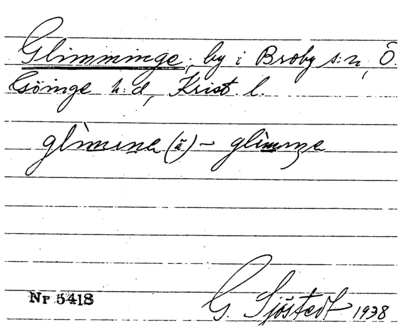 Glimminge, by i Broby s:n, Ö.
Göinge h:d, Krist. l.
Nr 5418
G. Sjöstedt 1938